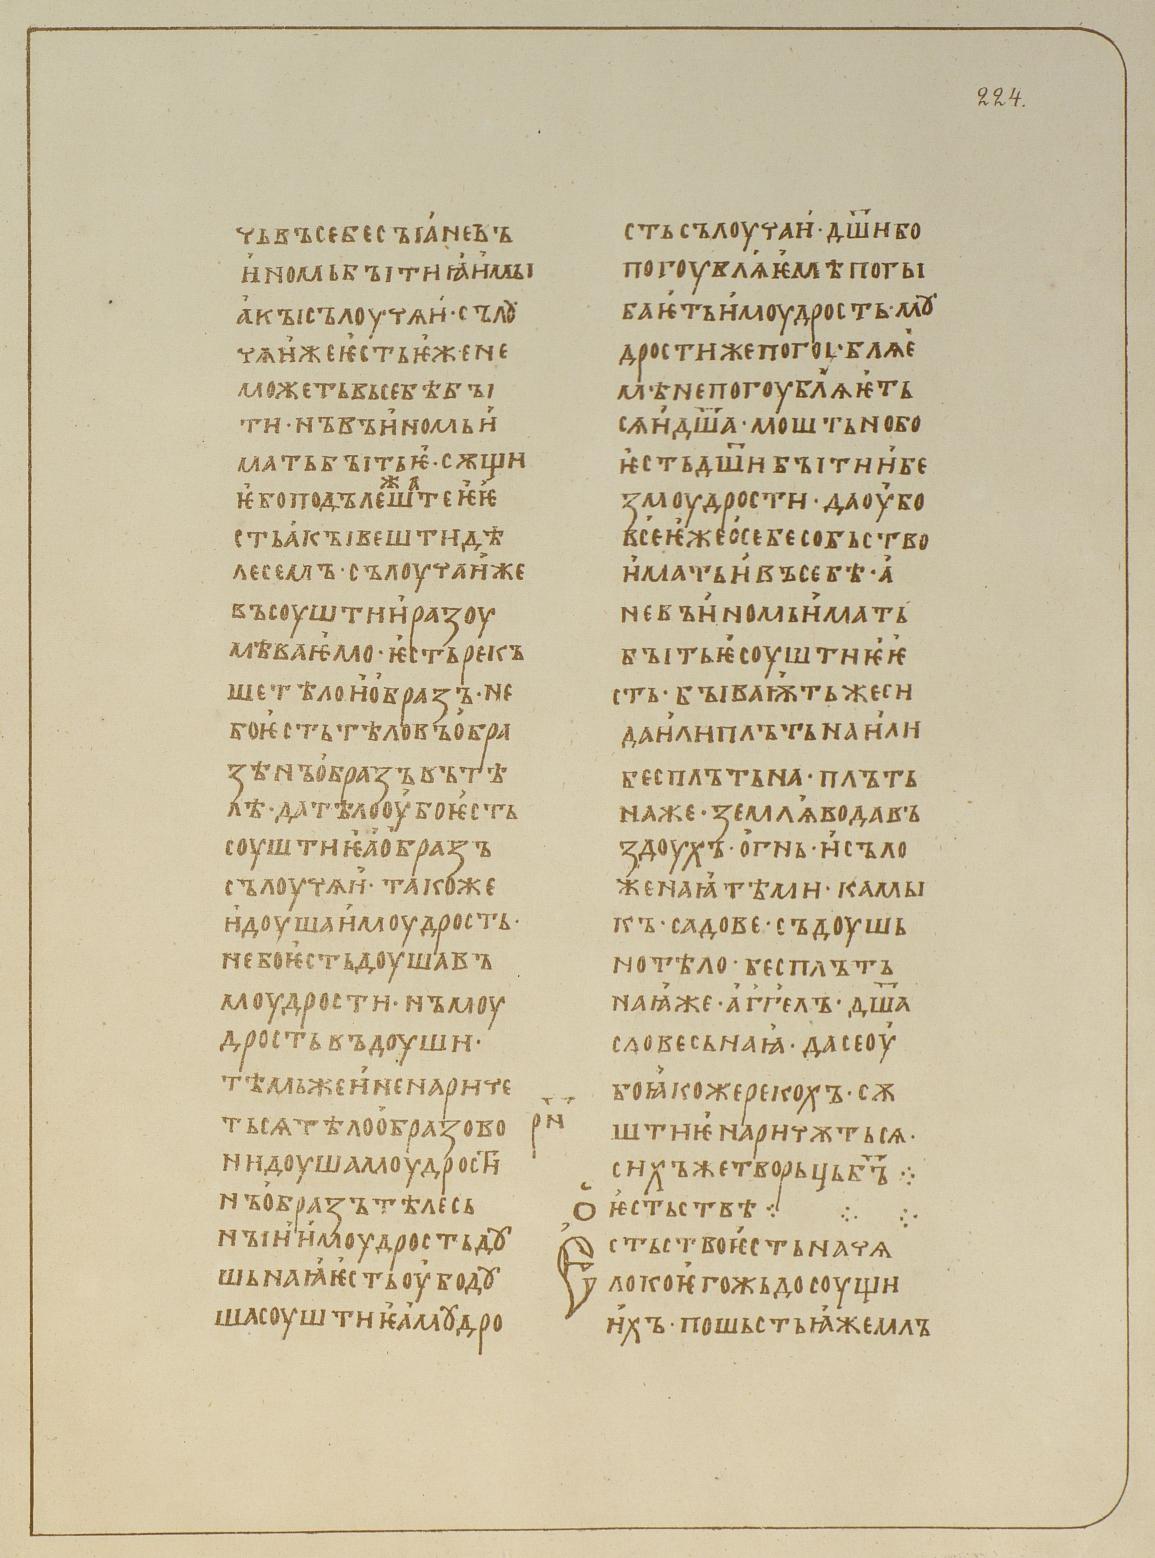 224.
ть въсебесъꙗ́невъ
и҆номьбꙑтиꙗ҆и҆мꙑ
а҆кꙑсълоучѧи҆·сълꙋ
чѧи҆жеѥ҆стьѥ҆жене
можетьвьсебѣбꙑ
ти·нъвъи҆номьи҆
матьбꙑтьѥ҆·сѫщи
ѥ҆боподълежѧштеѥ҆ѥ҆
стьа҆кꙑвештидѣ
лесемъ·сълоучаи҆же
въсоуштии҆разоу
мѣваѥ҆мо·ѥ҆стьрекъ
шетѣлои҆о҆бразъ·не
боѥ҆стьтѣловъо҆бра
зѣнъо҆бразъвътѣ
лѣ·датѣлооу҆боѥ҆сть
соуштиѥ҆ао҆бразъ
сълоучѧи҆·такоже
и҆доушаи҆моудрость·
небоѥ҆стьдоушавъ
моудрости·нъмоу
дростьвъдоуши·
тѣмьжеи҆ненариче
тьсѧтѣлоо҆бразово
нидоушамоудрості
нъо҆бразътѣлесь
нꙑи҆и҆моудростьдꙋ
шьнаꙗ҆ѥ҆стьоу҆бодꙋ
шасоуштиѥ҆а҆мꙋдро
стьсълоучаи҆·дш҃ибо
погоувлꙗ҆ѥ҆мѣпогꙑ
баѥ҆тьи҆моудрость·мꙋ
дростижепогоу·блѧе҆
мѣнепогоублѧѥ҆ть
сѧи҆дш҃а·моштьнобо
ѥ҆стьдш҃ибꙑтии҆бе
змоудрости·даоу҆бо
всеѥ҆жео҆себесобьство
и҆матьи҆въсебѣ·а҆
невъи҆номьи҆мать
бꙑтьѥ҆соуштиѥ҆ѥ҆
сть·бꙑваѭ҆тьжеси
даи҆липлътьнаи҆ли
бесплътьна·плъть
наже·землꙗ҆водавъ
здоухъ·о҆гнь·и҆съло
женаꙗ҆тѣми·камꙑ
къ·садове·съдоушь
нотѣло·бесплътъ
наꙗ҆же·а҆г҆г҆елъ·дш҃а
словесьнаꙗ·дасеоу҆
боꙗ҆кожерекохъ·сѫ
штиѥ҆наричѫтьсѧ·
сихъжетворьцьб҃ъ ⁘
рн҃
о҆ ѥ҆стьствѣ ⁘ ⁘ ⁘
Естьствоѥ҆стьначѧ
локоѥ҆гожьдосоущи
и҆хъ·пошьстьꙗ҆жемлъ